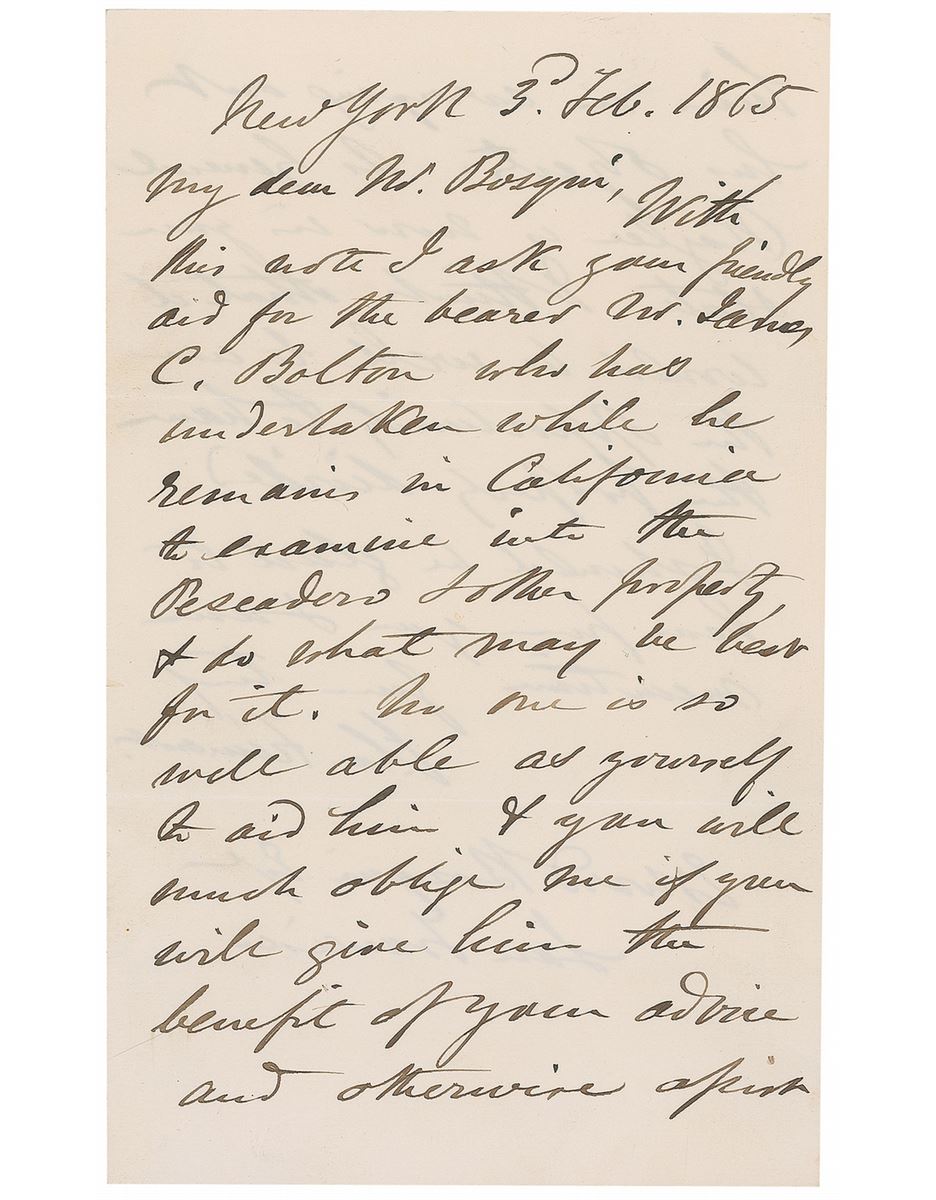 New York 3d. Feb. 1865
My dear Mr. Bosqui, With
this note I ask your friendly
aid for the bearer Mr. James
C. Bolton who has
undertaken while he
remains in California
to examine into the
Pescadero & other property
& do what may be best
for it. No one is so
well able as yourself
to aid him & you will
much oblige me if you
will give him the
benefit of your advice
and otherwise assist